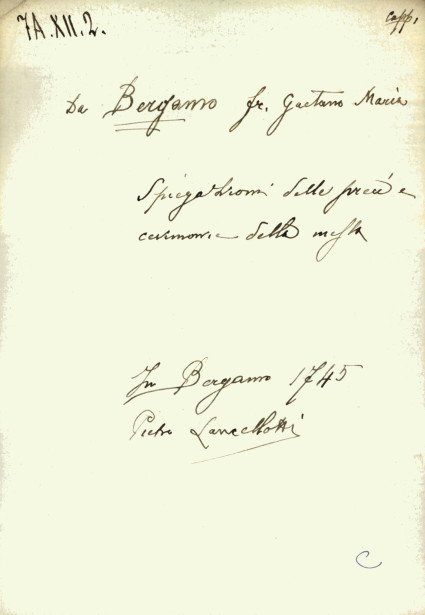 7A.XII.2.
capp.
Da Bergamo fr. Gaetano Maria
Spiegazioni delle preci e
cerimonie della messa
In Bergamo 1745
Pietro Lancellotti
C